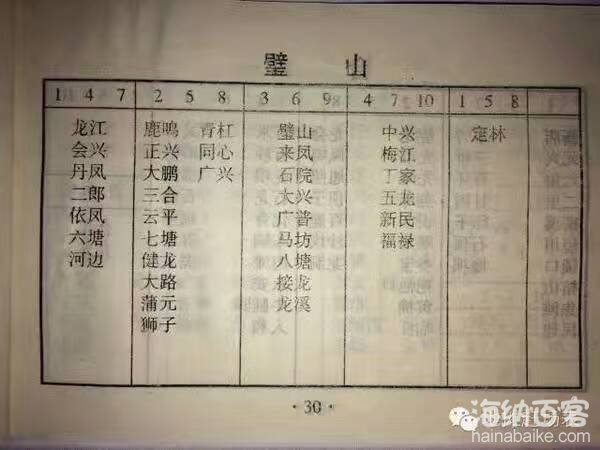 璧山
1 4 7
2 5 8
3 6 9
4 7 10
1 5 8
龙江
会兴
丹凤
二郎
依凤
六塘
河边
鹿鸣 青杠
正兴 同心
大鹏 广兴
三合
云平
七塘
健龙
大路
蒲元
狮子
璧山
来凤
石院
大兴
广普
马坊
八塘
接龙
龙溪
中兴
梅江
丁家
五龙
新民
福禄
定林
·30·
海纳百客
hainabaike.com